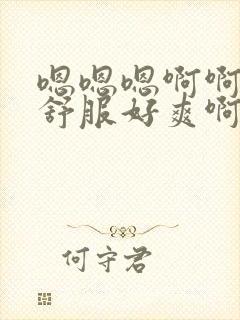 嗯嗯嗯啊啊
舒服好爽啊
何守君